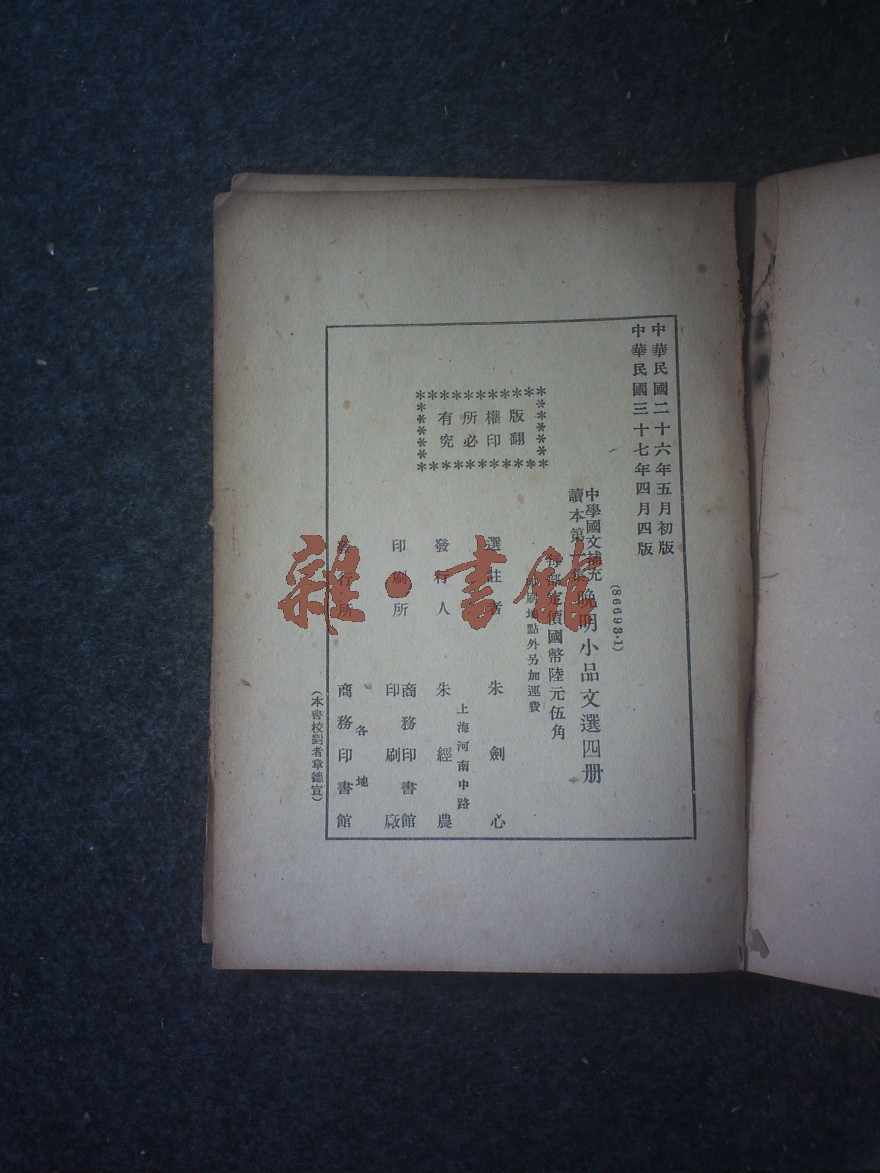 中華民國二十六年五月初版
中華民國三十七年四月四版
(86698·1)
中學國文補充
讀本第一集
晚明小品文選四册
每部定價國幣陸元伍角
印刷地點外另加運費
版權所有
翻印必究
選註者 朱劍心
上海河南中路
發行人 朱經農
印刷所 商務印書館
印刷廠
各地
發行所 商務印書館
(本書校對者章德宣)
雜·書館